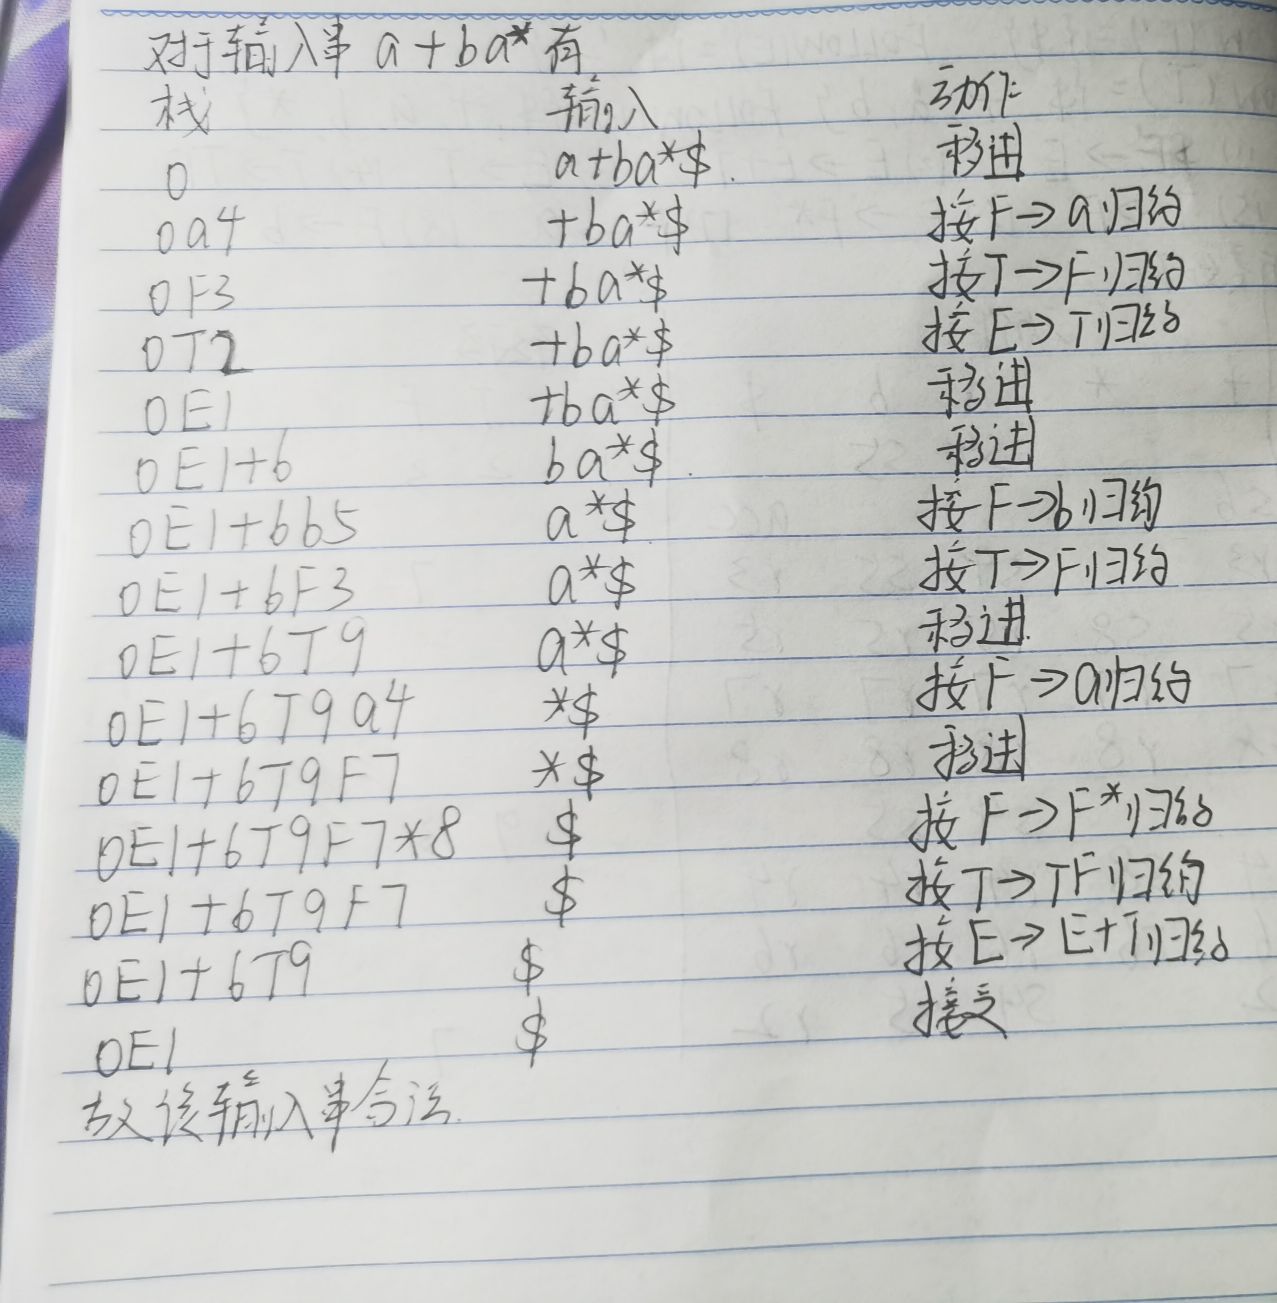 对于输入串 a+ba* 有
栈 输入 动作
0 a+ba*$ 移进
0a4 +ba*$ 按F→a归约
0F3 +ba*$ 按T→F归约
0T2 +ba*$ 按E→T归约
0E1 +ba*$ 移进
0E1+6 ba*$ 移进
0E1+6b5 a*$ 按F→b归约
0E1+6F3 a*$ 按T→F归约
0E1+6T9 a*$ 移进
0E1+6T9a4 *$ 按F→a归约
0E1+6T9F7 *$ 移进
0E1+6T9F7*8 $ 按F→F*归约
0E1+6T9F7 $ 按T→TF归约
0E1+6T9 $ 按E→E+T归约
0E1 $ 接受
故该输入串合法.